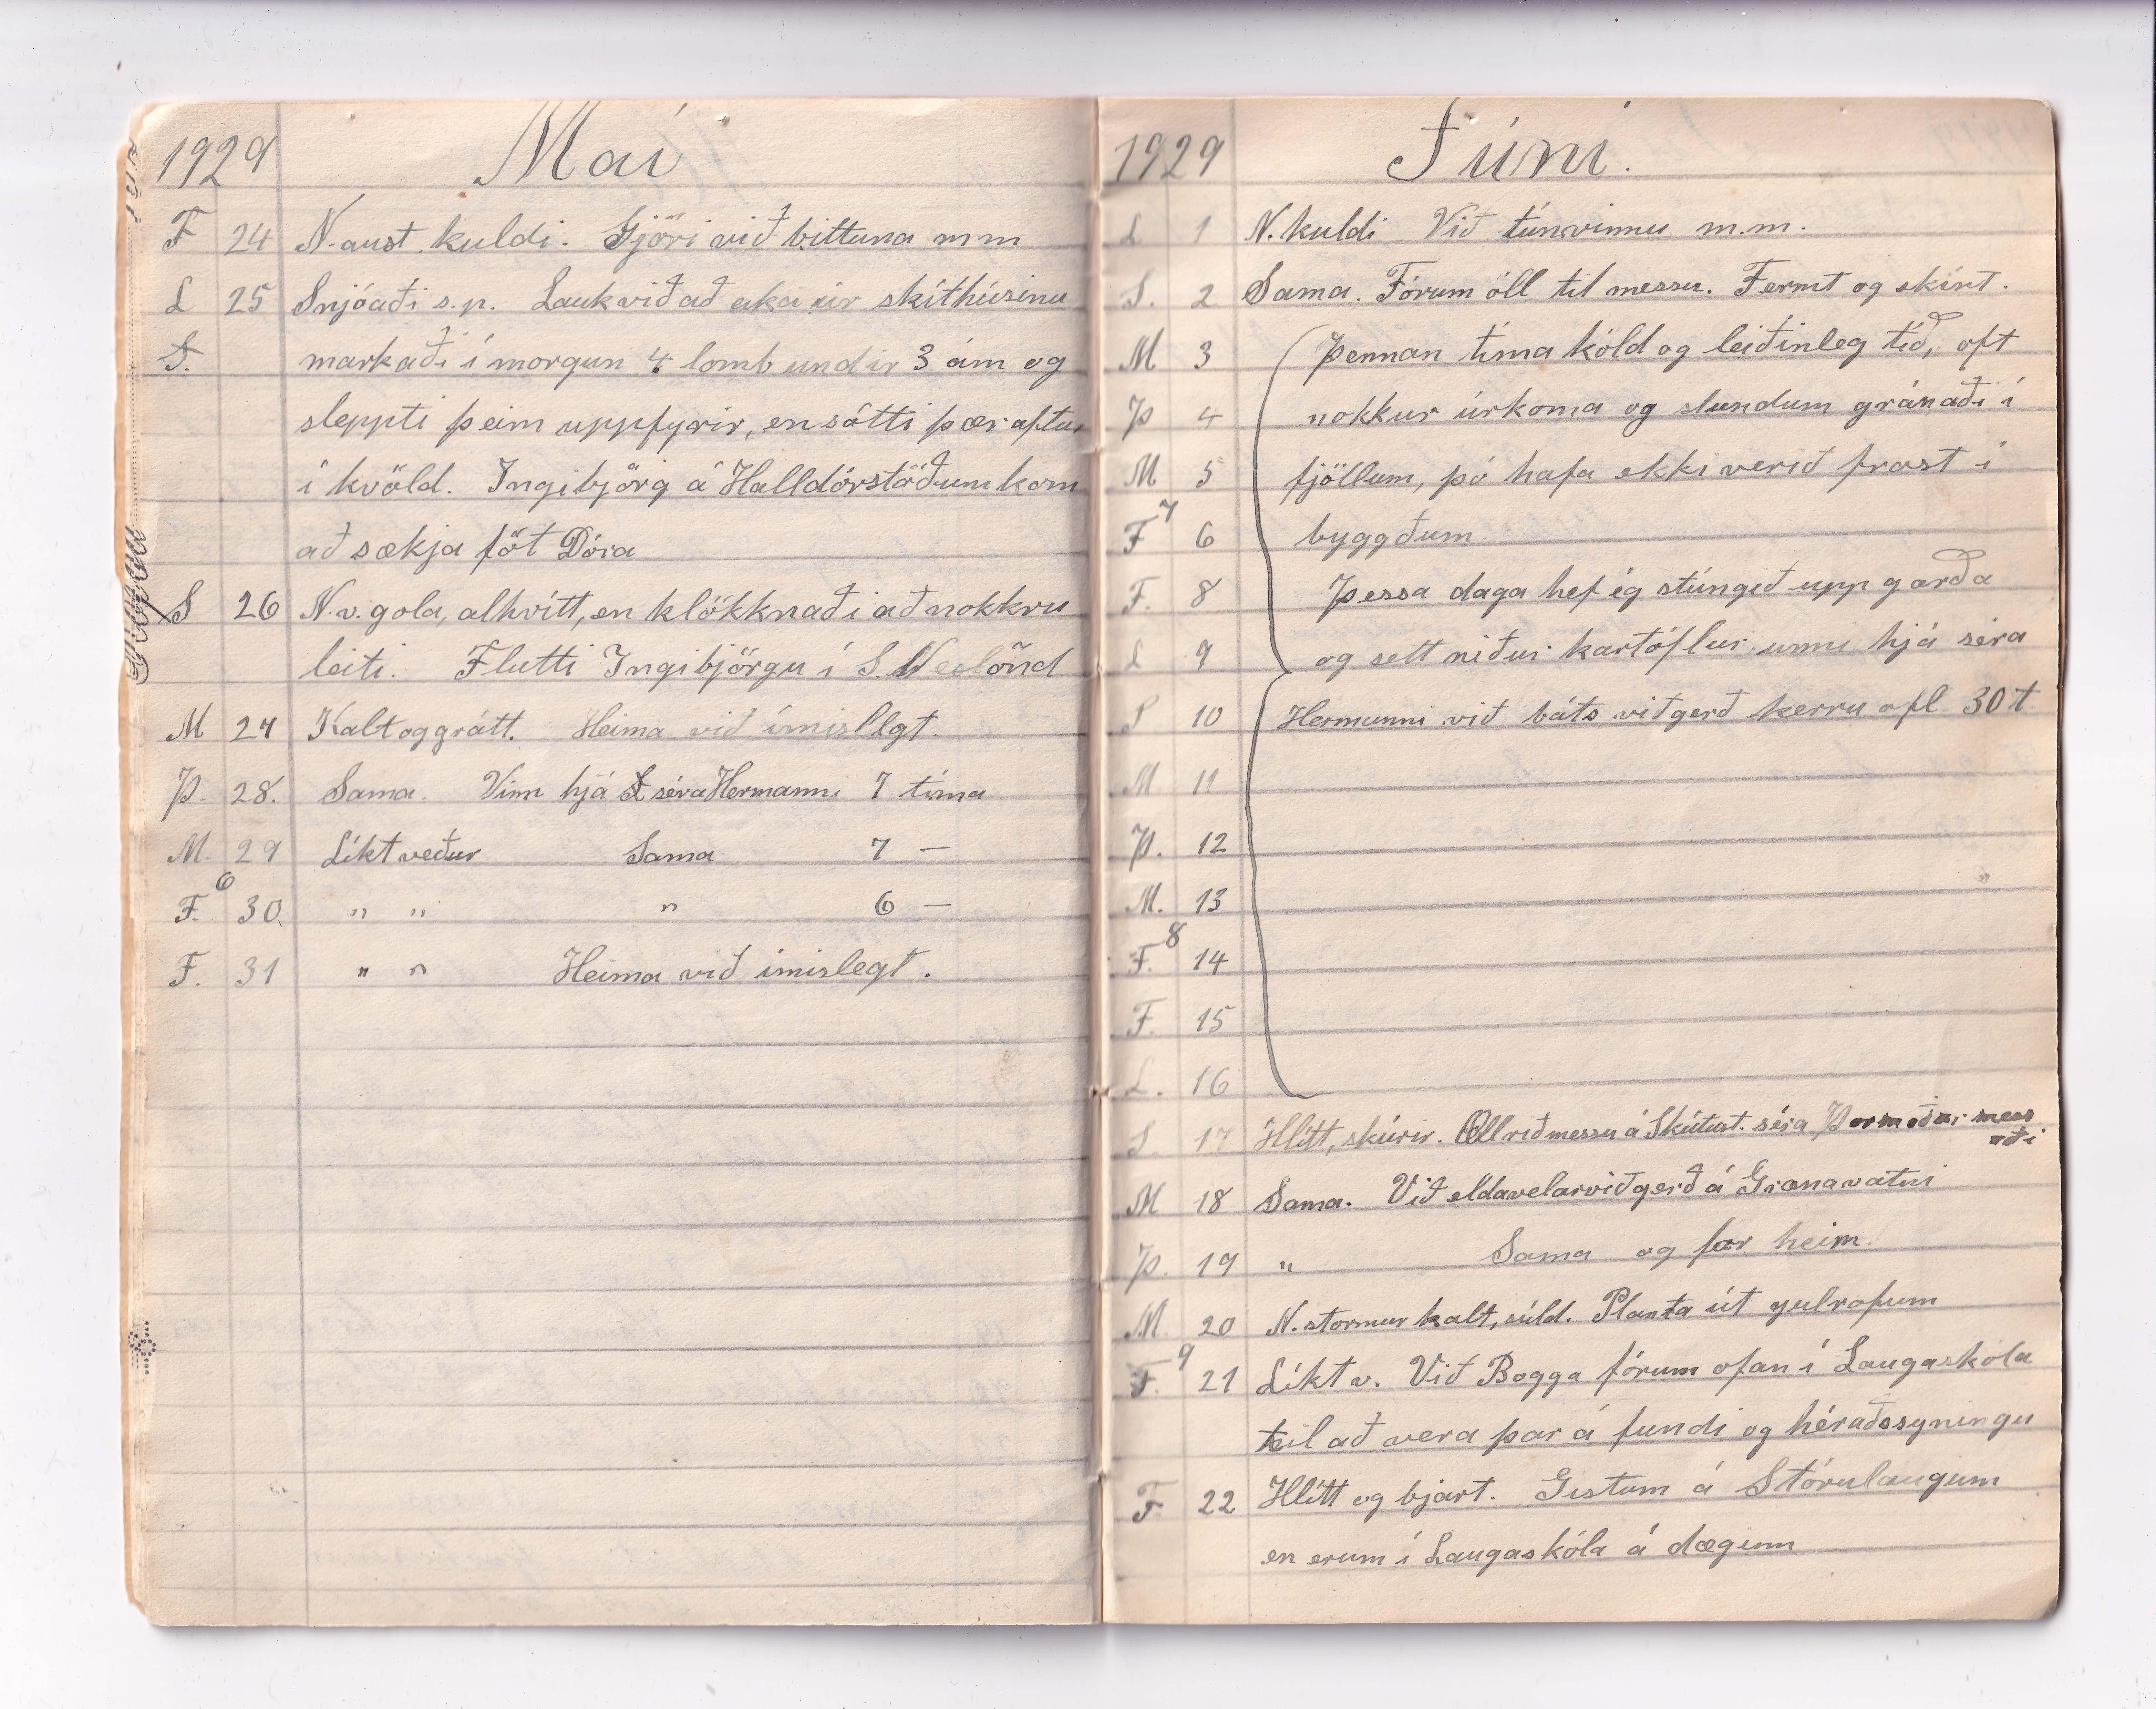 1929 Maí
F 24 N-aust kuldi. Gjöri við bittuna m m
L 25 Snjóaði s.p. Lauk við að aka úr skíthúsinu
S. markaði í morgun 4 lomb undir 3 ám og
sleppti þeim uppfyrir, en sótti þær aftur
í kvöld. Ingibjörg á Halldórstöðum kom
að sækja föt Dóra
S 26 N.v. gola, alhvítt, en klökknaði að nokkru
leiti. Flutti Ingibjörgu í S. Neslönd
M 27 Kalt og grátt. Heima við ímisllgt.
Þ. 28. Sama. Vinn hjá séra Hermanni 7 tíma
M. 29 Líkt veður Sama 7 —
6
F. 30. " " " 6 —
F. 31 " " Heima við imislegt.
1929 Júni.
L 1 N. kuldi Við túnvinnu m.m.
S. 2 Sama. Fórum öll til messu. Fermt og skírt.
M 3 Þennan tíma köld og leiðinleg tíð, oft
Þ 4 nokkur úrkoma og stundum gránaði í
M 5 fjöllum, þó hafa ekki verið frost í
7
F 6 byggðum.
F. 8 Þessa daga hef ég stúngið upp garða
L 9 og sett niður kartöflur unni hjá séra
S 10 Hermanni við báts viðgerð kerru ofl 30 t
M 11
Þ. 12
M. 13
8
F. 14
F. 15
L. 16
S. 17 Hlítt, skúrir. Öll við messu á Skútust. séra Þormóður mess
aði
M 18 Sama. Við eldavelarviðgerð á Grænavatni
Þ. 19 " Sama og fær heim.
M. 20 N. stormur kalt, súld. Planta út gulrofum
9
F. 21 Líkt v. Við Bogga fórum ofan í Laugaskola
til að vera þar á fundi og héraðssyningu
F 22 Hlítt og bjart. Gistum á Stórulaugum
en erum í Laugaskóla á dæginn